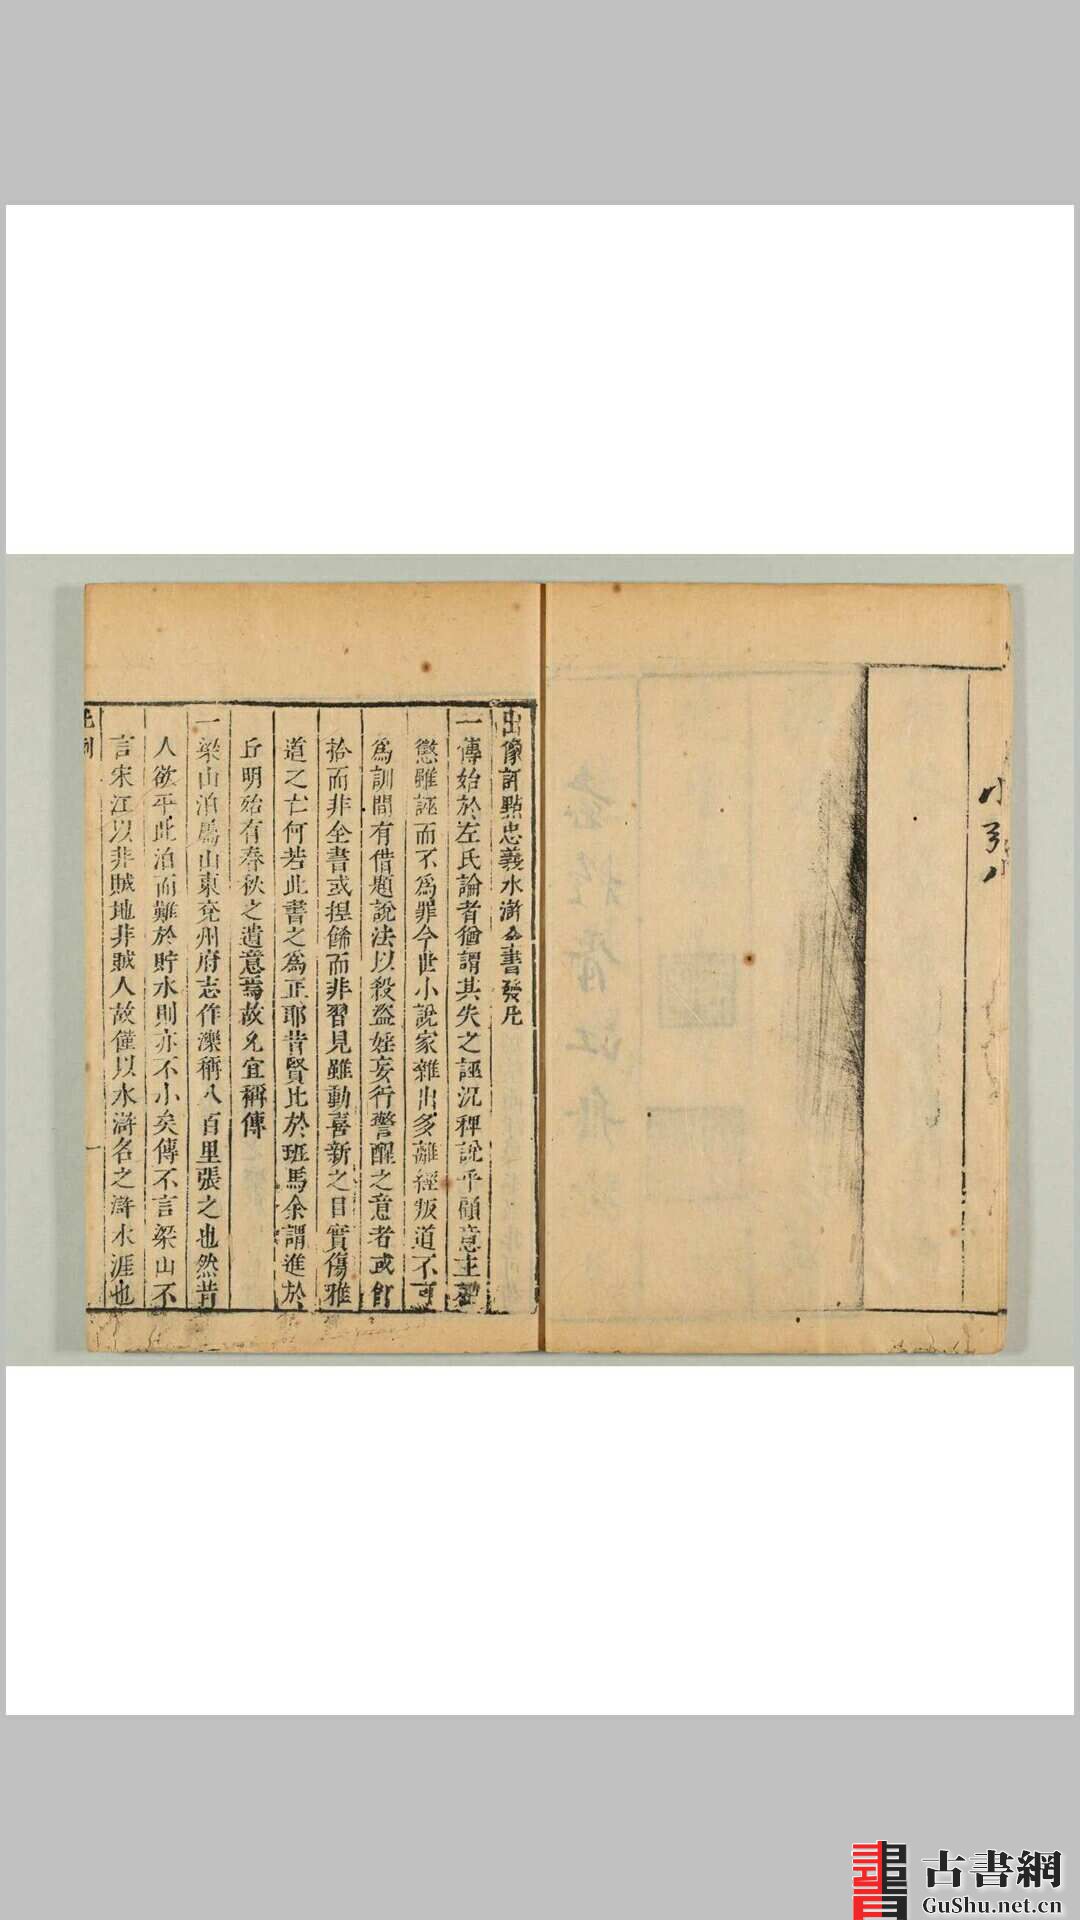 小引
八
出像評點忠義水滸全書發凡
一傳始於左氏論者猶謂其失之誣況稗說乎顧意主勸
懲雖誣而不為罪今世小說家雜出多離經叛道不可
為訓間有借題說法以殺盜婬妄行警醒之意者或釘
拾而非全書或捏餙而非習見雖動喜新之目實傷雅
道之亡何若此書之為正耶昔賢比於班馬余謂進於
丘明殆有春秋之遺意焉故允宜稱傳
一梁山泊屬山東兗州府志作濼稱八百里張之也然昔
人欲平此泊而難於貯水則亦不小矣傳不言梁山不
言宋江以非賊地非賊人故僅以水滸名之滸水涯也
一
古書網
GuShu.net.cn